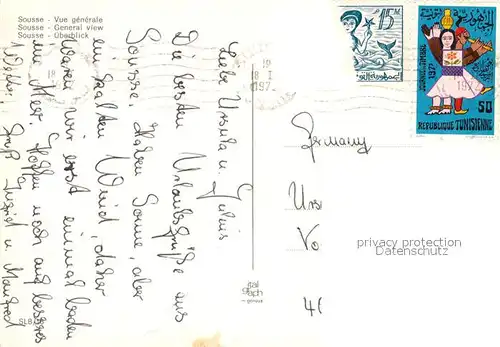 Sousse - Vue générale
Sousse - General view
Sousse - Überblick
Liebe Ursula u. Julius
Die besten Urlaubsgrüße aus
Sousse. Haben Sonne, aber
ein kalten Wind, daher
waren wir erst einmal baden
im Meer. Hoffen noch auf besseres
Wetter. Gruß Ingrid u. Manfred
18 I
197
15M
1972
50
REPUBLIQUE TUNISIENNE
Germany
Urs
Vo
41
privacy protection
Datenschutz